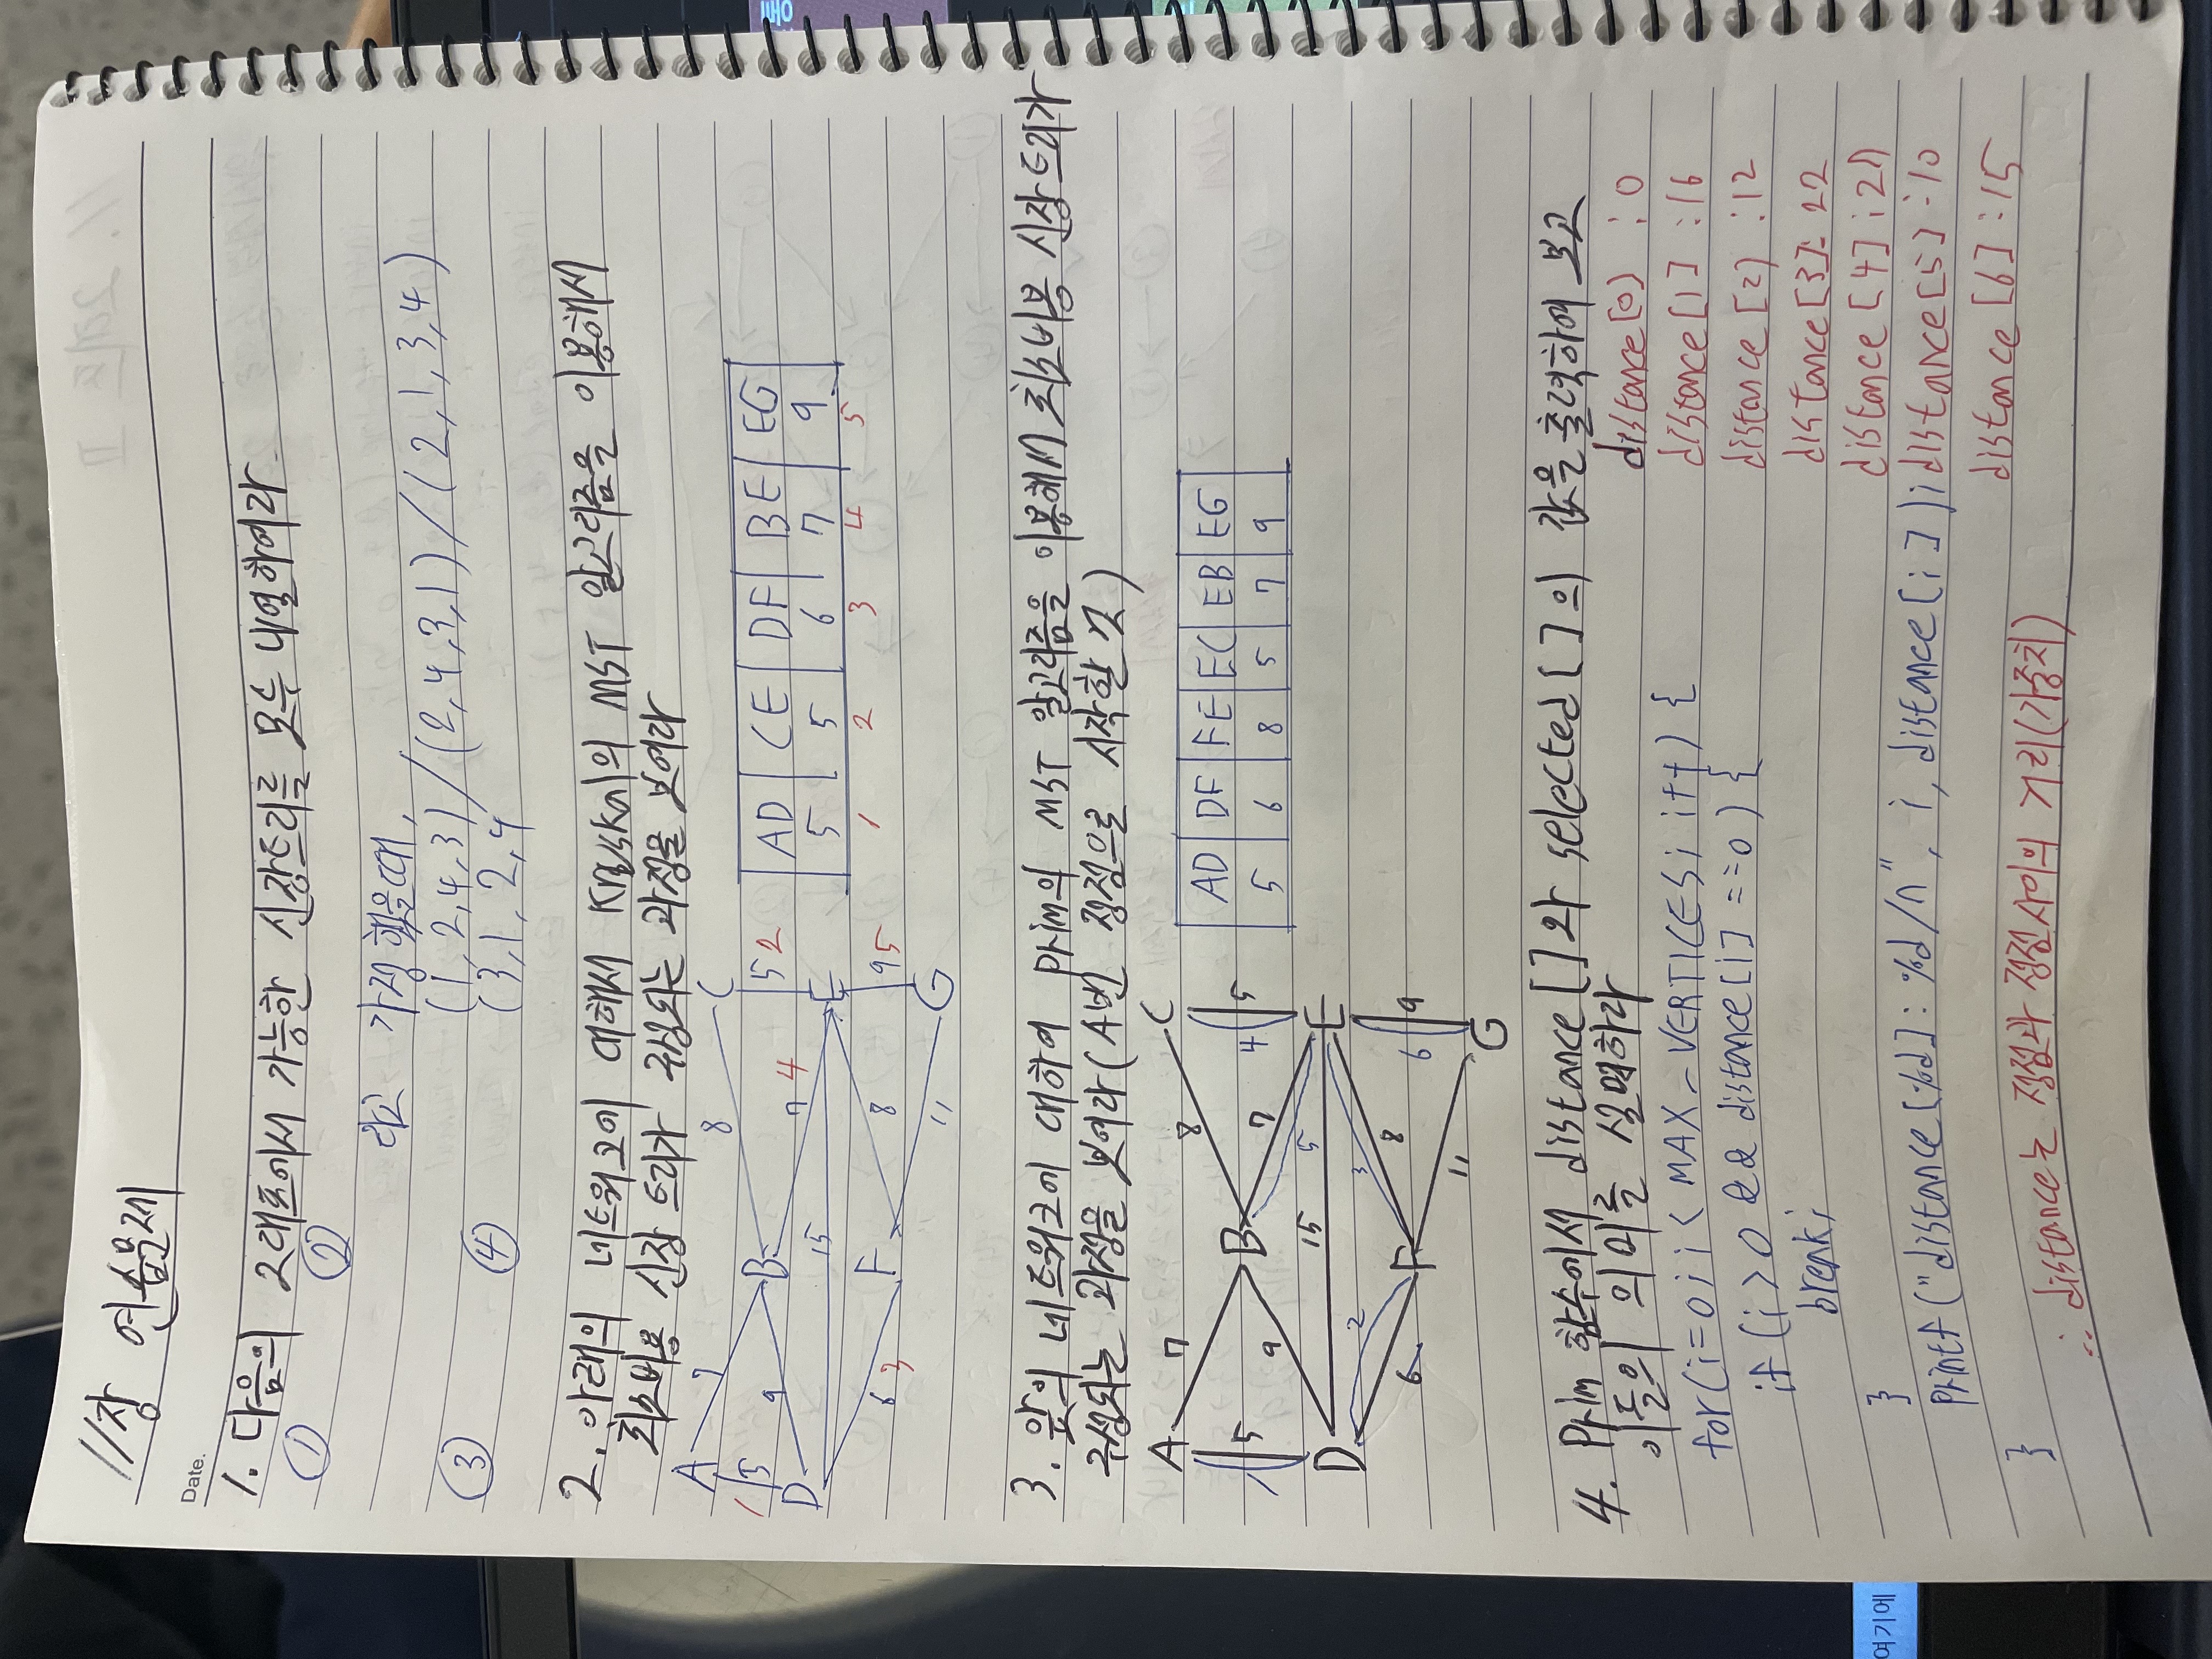 11장 연습문제
Date.
1. 다음의 그래프에서 가능한 신장트리를 모두 나열하여라.
① ②
라고 가정했을때,
(1, 2, 4, 3) / (2, 4, 3, 1) / (2, 1, 3, 4)
③ ④ (3, 1, 2, 4
2. 아래의 네트워크에 대해서 Kruskal의 MST 알고리즘을 이용해서
최소비용 신장 트리가 구성되는 과정을 보여라
A 7 8 C
1 5 B 5 2
9 7 4
D 15 E
F
6 3 8 9 5
11 G
AD CE DF BE EG
5 5 6 7 9
1 2 3 4 5
3. 앞의 네트워크에 대하여 prim의 MST 알고리즘을 이용해서 최소비용 신장 트리가
구성되는 과정을 보여라 (A번 정점으로 시작할 것)
A 7 8 C
5 B 4 5
9 7
15 5
D E
2 3
6 F 8 6 9
11
G
AD DF FE EC EB EG
5 6 8 5 7 9
4. Prim 함수에서 distance[]와 selected[]의 값을 출력하여 보고
이들의 의미를 설명하라
for(i=0; i< MAX_VERTICES; i++) {
if (i>0 && distance[i] ==0) {
break;
}
printf("distance[%d]: %d/n", i, distance[i]);
}
distance[0] : 0
distance[1] : 16
distance[2] : 12
distance[3]: 22
distance[4] : 27
distance[5] : 10
distance[6] : 15
∴ distance는 정점과 정점사이의 거리(가중치)